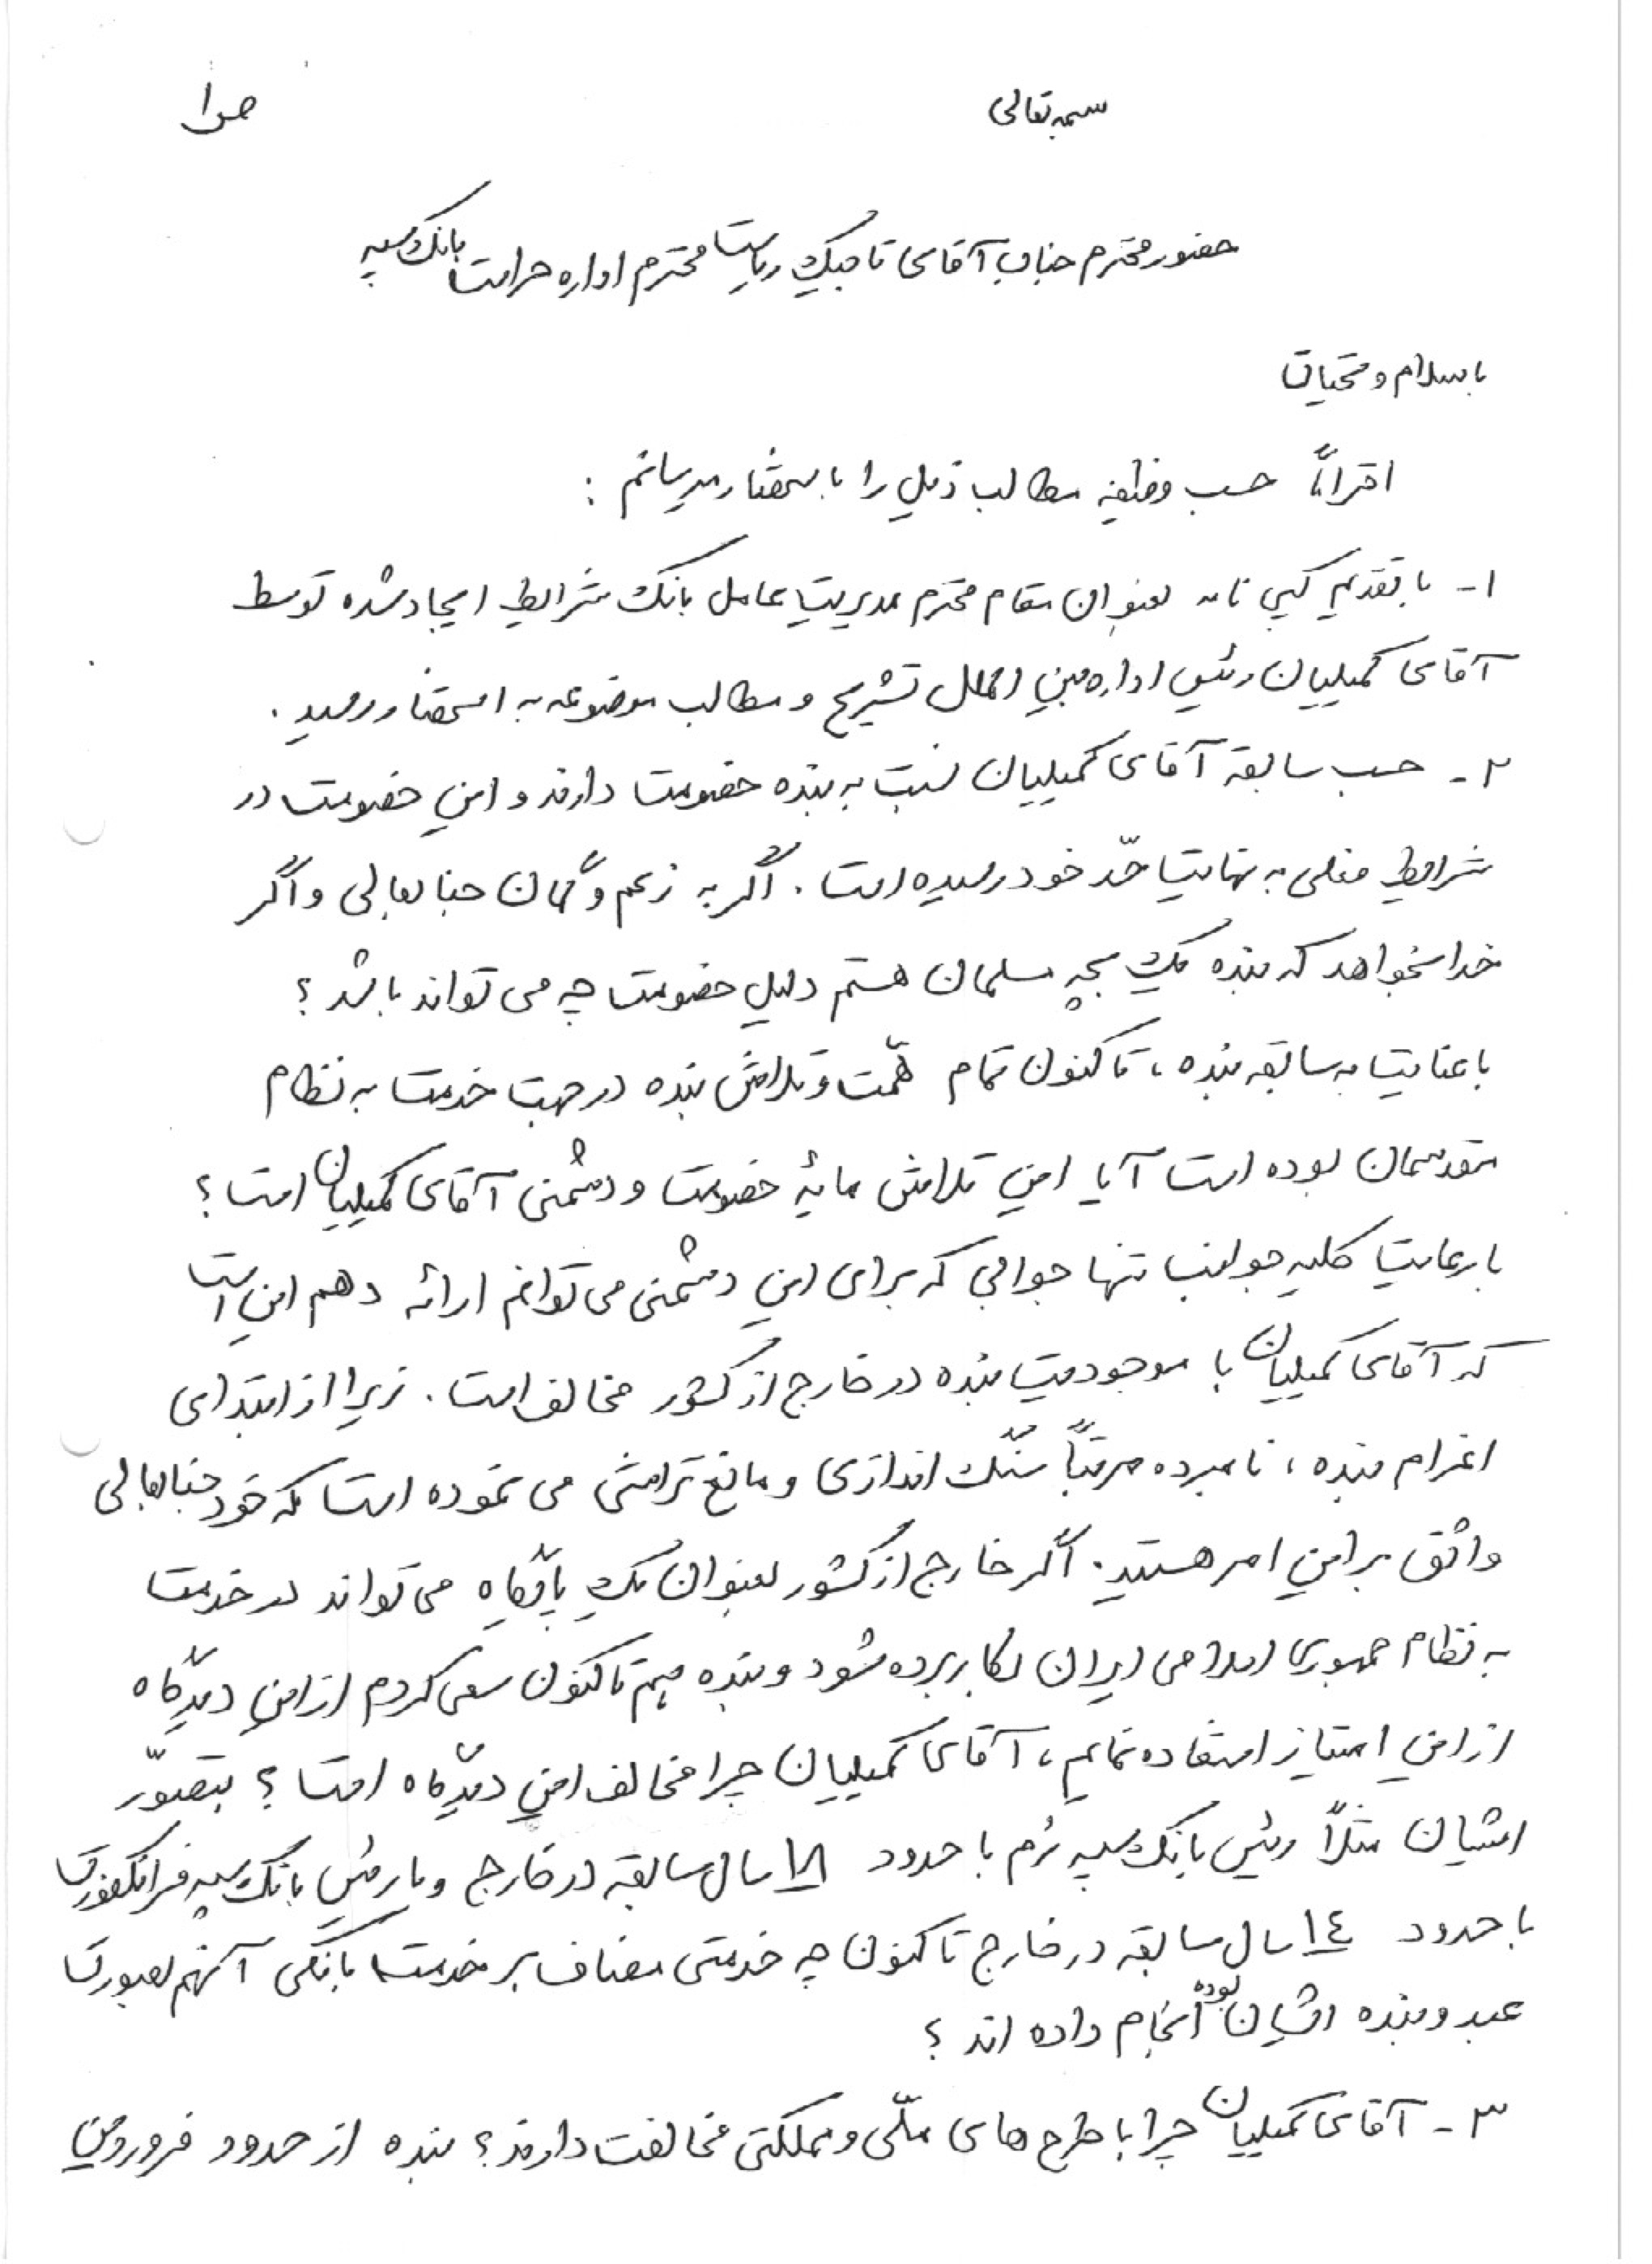 بسمه تعالی
ص ۱
حضور محترم جناب آقای تاجیک ریاست محترم اداره حراست بانک سپه
با سلام و تحیات
احتراماً حسب وظیفه مطالب ذیل را باستحضار میرسانم :
۱- با تقدیم کپی نامه بعنوان مقام محترم مدیریت عامل بانک شرایط ایجاد شده توسط
آقای کمیلیان رئیس اداره بین الملل تشریح و مطالب موضوعه به استحضار رسید .
۲- حسب سابقه آقای کمیلیان نسبت به بنده خصومت دارند و این خصومت در
شرایط فعلی به نهایت حدّ خود رسیده است . اگر به زعم و گمان جنابعالی و اگر
خدا بخواهد که بنده یک بچه مسلمان هستم دلیل خصومت چه می تواند باشد ؟
با عنایت به سابقه بنده ، تاکنون تمام همّت و تلاش بنده در جهت خدمت به نظام
مقدسمان بوده است آیا این تلاش مایۀ خصومت و دشمنی آقای کمیلیان است ؟
با رعایت کلیه جوانب تنها جوابی که برای این دشمنی می توانم ارائه دهم این است
که آقای کمیلیان با موجودیت بنده در خارج از کشور مخالف است . زیرا از ابتدای
اعزام بنده ، نامبرده مرتباً سنگ اندازی و مانع تراشی می نموده است که خود جنابعالی
واثق بر این امر هستید . اگر خارج از کشور بعنوان یک پایگاه می تواند در خدمت
به نظام جمهوری اسلامی ایران بکار برده شود و بنده هم تاکنون سعی کردم از این دیدگاه
از این امتیاز استفاده نمایم ، آقای کمیلیان چرا مخالف این دیدگاه است ؟ بتصوّر
ایشان مثلاً رئیس بانک سپه رُم با حدود ۱۸ سال سابقه در خارج و یا رئیس بانک سپه فرانکفورت
با حدود ۱٤ سال سابقه در خارج تاکنون چه خدمتی مضاف بر خدمت بانکی آنهم بصورت
عبد و بنده ایشان بوده انجام داده اند ؟
۳- آقای کمیلیان چرا با طرح های ملّی و مملکتی مخالفت دارند ؟ بنده از حدود فروردین